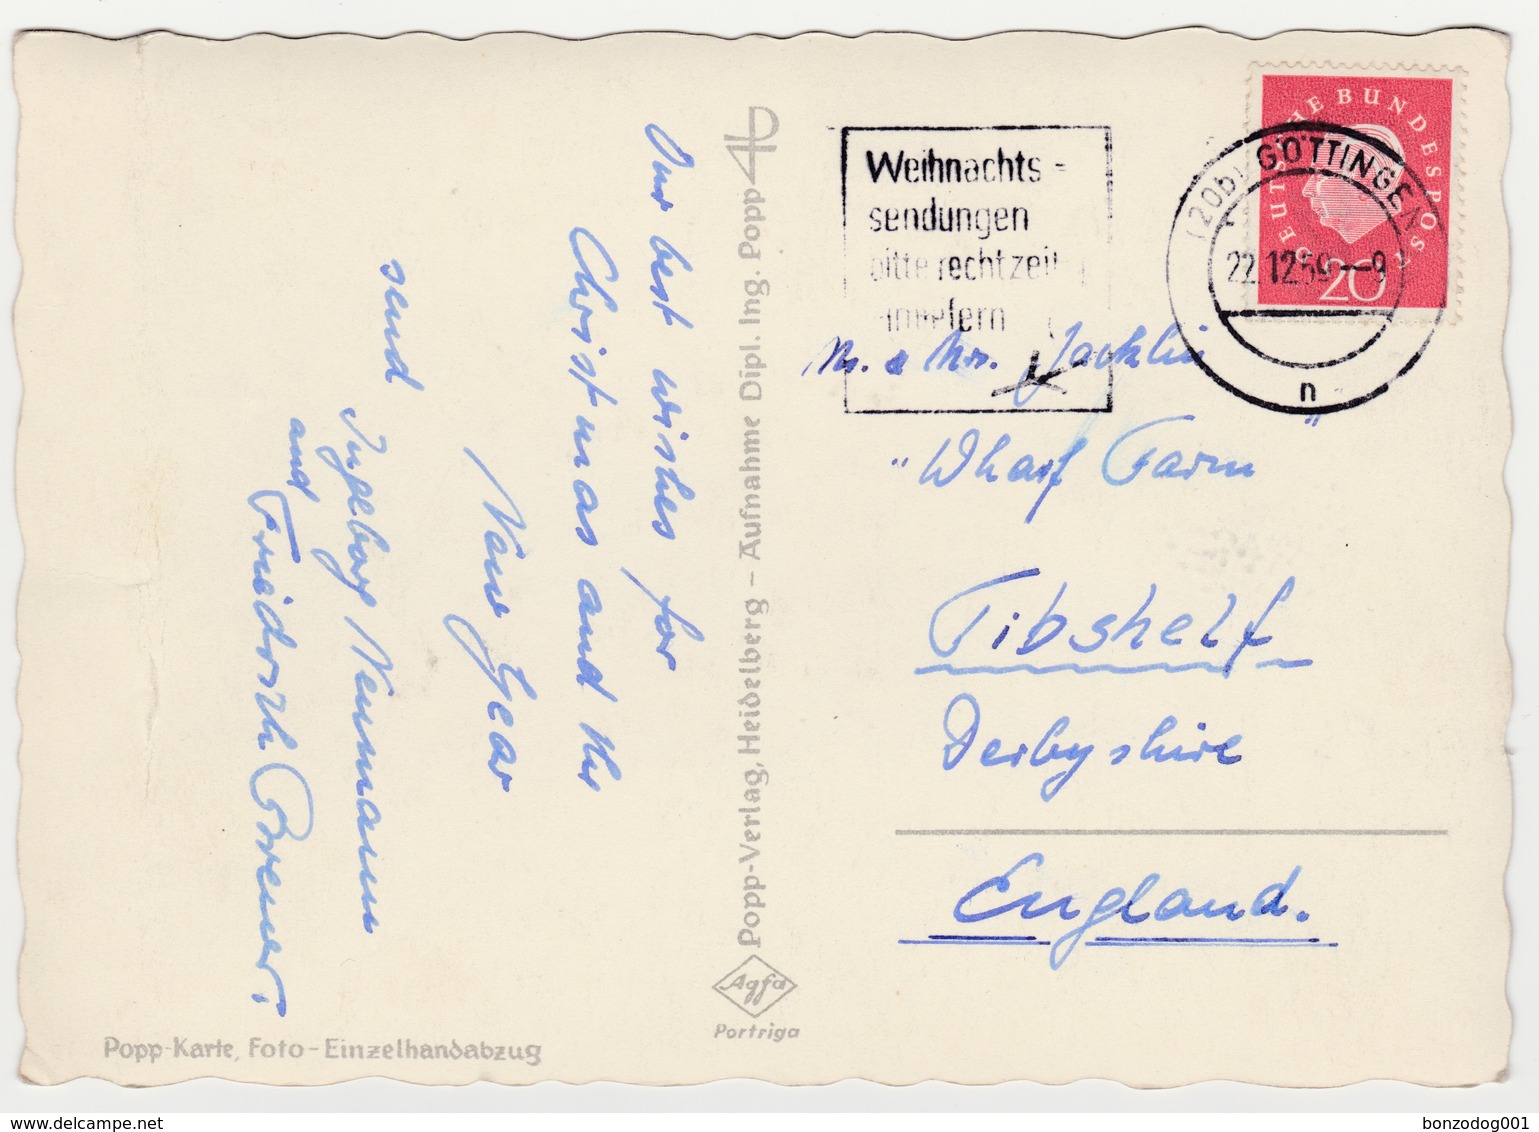 Our best wishes for
Christmas and the
New Year
send
Ingeborg Neumann
and
Friedrich Bremer.
Popp-Karte, Foto-Einzelhandabzug
Popp-Verlag, Heidelberg – Aufnahme Dipl. Ing. Popp
Agfa
Portriga
Weihnachts-
sendungen
bitte rechtzeitig
einliefern
(20b) GÖTTINGEN
22.12.59--9
n
DEUTSCHE BUNDESPOST
20
M. & Mrs. Jacklin
"Wharf Farm"
Tibshelf
Derbyshire
England.
bonzodog001